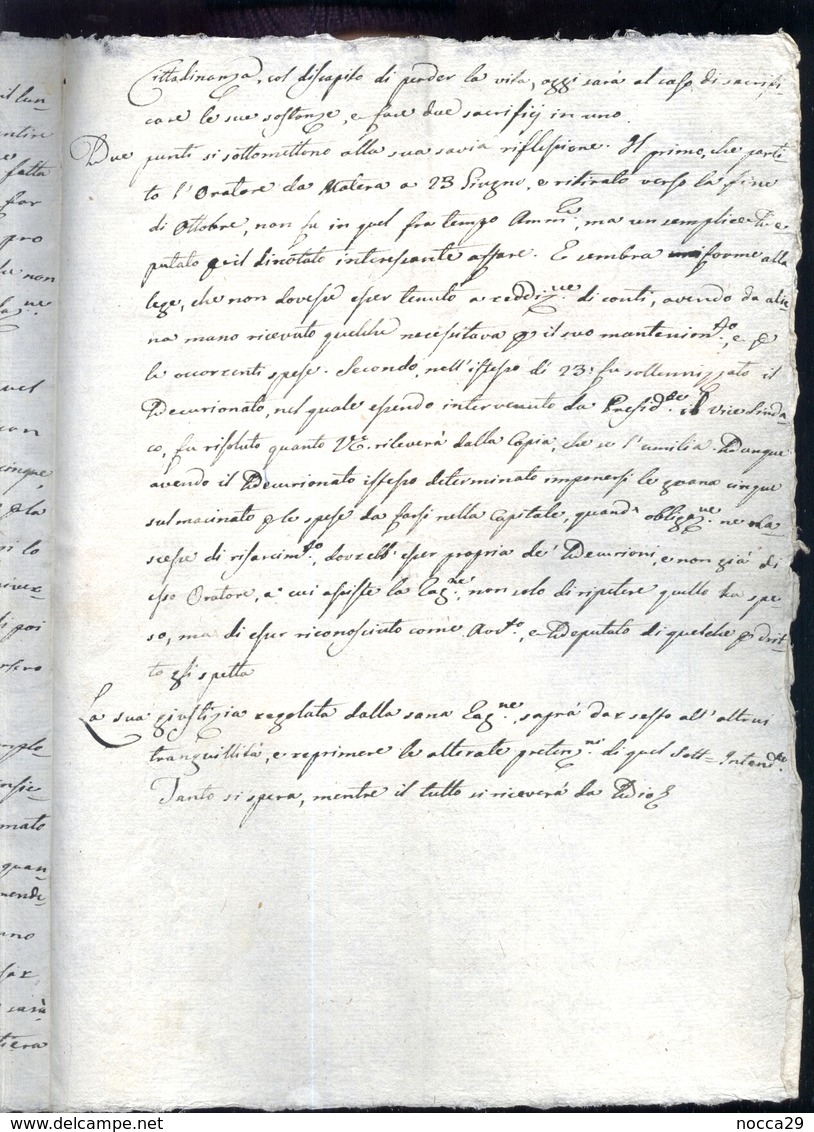 Cittadinanza, col discapito di perder la vita, oggi sarà al caso di sacrifi-
care le sue sostanze, e fare due sacrificj in uno.
Due punti si sottomettono alla sua savia riflessione. Il primo, che parti-
to l'Oratore da Matera a 23 Giugno, e ritirato verso la fine
di Ottobre, non fu in quel fra tempo Amm.re, ma un semplice De-
putato p il dinotato interessante affare. E sembra uniforme alla
lege, che non dovesse esser tenuto a reddiz.ne di conti, avendo da alcu-
na mano ricevuto quelche necessitava p il suo mantenim.to, e p
le occorrenti spese. Secondo, nell'istesso dì 23: fu sollennizzato il
Decurionato, nel quale essendo intervenuto da Presid.te il Vice Sinda-
co, fu risoluto quanto V.E. rileverà dalla Copia, che se l'umilia. Dunque
avendo il Decurionato istesso determinato imponersi le grana cinque
sul macinato p le spese da farsi nella Capitale, quand' obligaz.ne ne na-
scesse di risarcim.to, dovrebb'esser propria de' Decurioni, e non già di
esso Oratore, a cui assiste la Rag.ne, non solo di ripetere quello ha spe-
so, ma di esser riconosciuto come Avv.to, e Deputato di quelche p drit-
to gli spetta
La sua giustizia regolata dalla sana Rag.ne, saprà dar sesto all'altrui
tranquillità, e reprimere le alterate preten.ni di quel Sott=Intend.te.
Tanto si spera, mentre il tutto si riceverà da Dio
il lun-
fatta
far
pro
non
quel
con
cinque,
p la
lo
poi
mato
quan-
mendi-
ano
sarà
nocca29